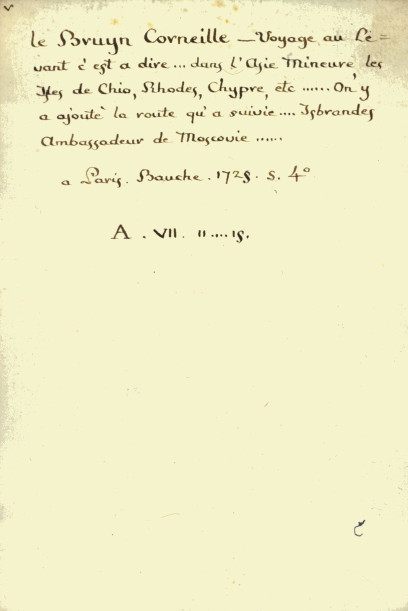 le Bruyn Corneille — Voyage au Le=
vant c'est a dire ... dans l'Asie Mineure les
Isles de Chio, Rhodes, Chypre, etc ...... On'y
a ajouté la route qu'a suivie .... Isbrandes
Ambassadeur de Moscovie ......
a Paris. Bauche. 1725. 5. 4°
A . VII. II .... 15.